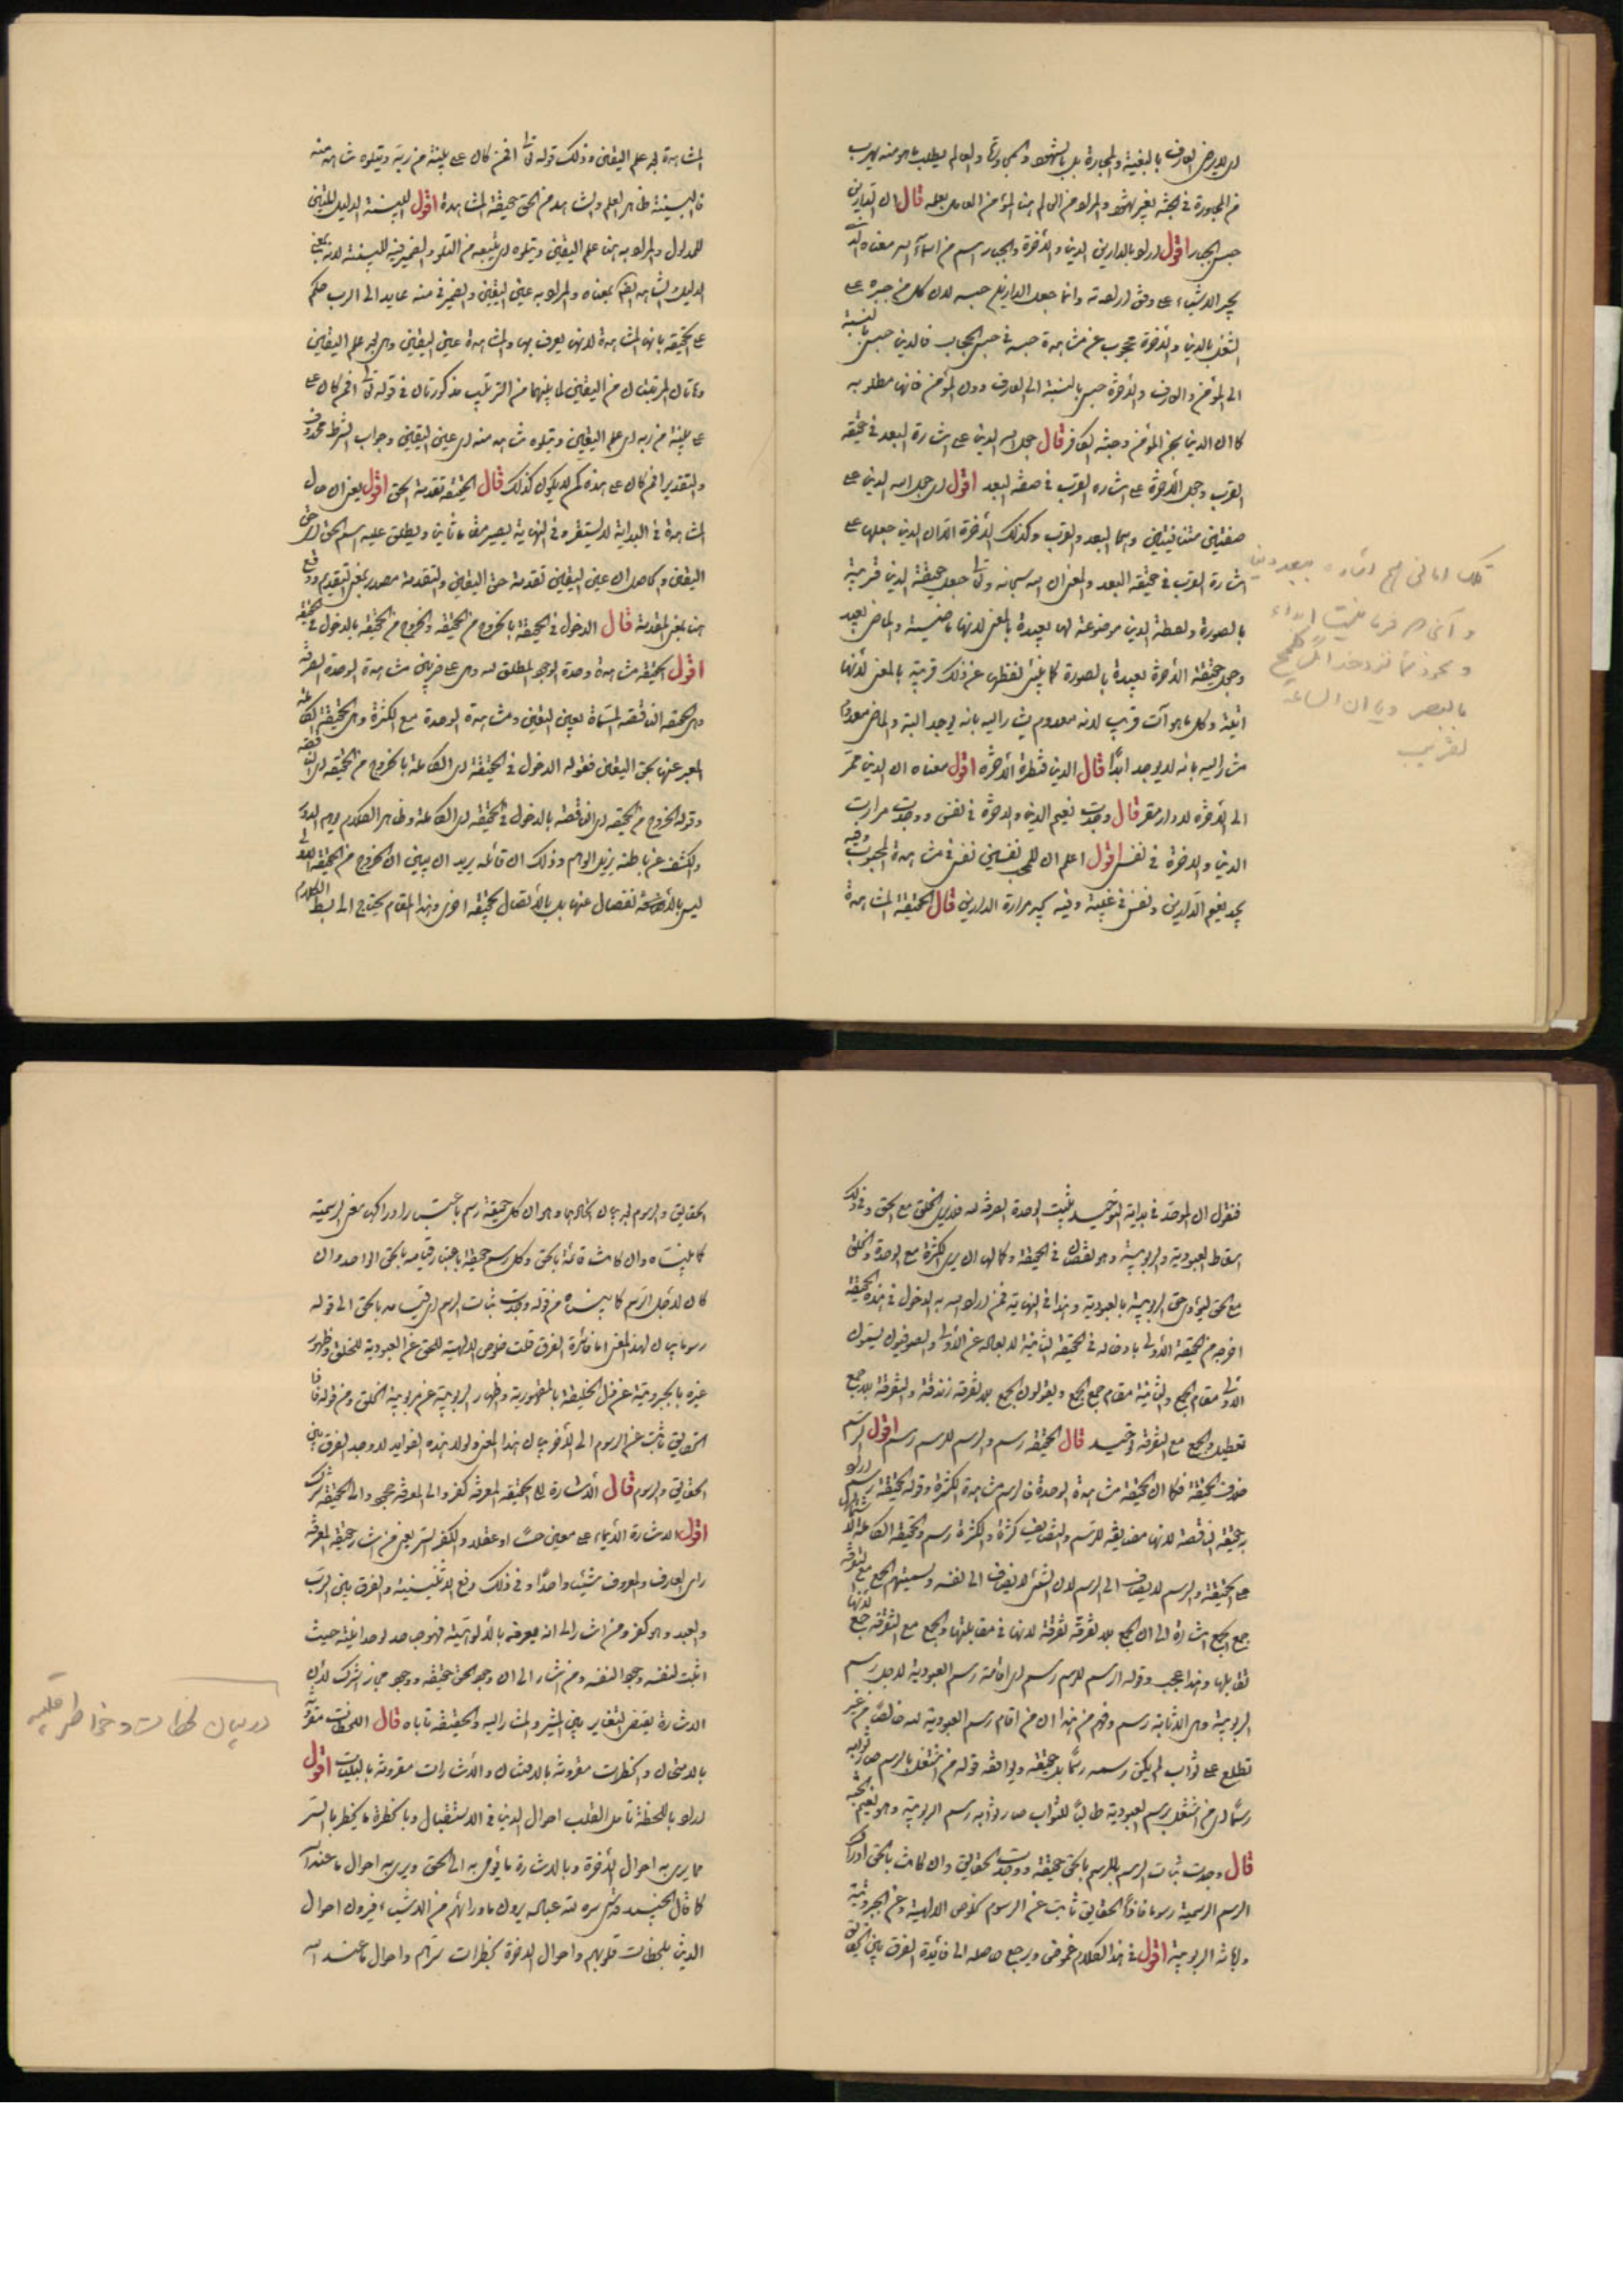 لا يرضى العارف بالغيبة والمجاورة بل بالشهود والعالم يطلب ما هو منه يهرب
من المجاورة في الجنة بغير شهود والمراد من العالم هنا المؤمن العامل بعلمه قال ان الدارين
حبس الجبار اقول اراد بالدارين الدنيا والآخرة والجبار اسم من اسماء الله معناه
يجبر الاشياء على وفق ارادته وانما جعل الدارين حبسه لان كل من جبره على
الشغل بالدنيا والآخرة محجوب عن مشاهدة حبسه في حبس الحجاب فالدنيا حبس بالنسبة
الى المؤمن والعارف والآخرة حبس بالنسبة الى العارف دون المؤمن فانها مطلوبه
كما ان الدنيا سجن المؤمن وجنة الكافر قال جعل الله الدنيا على اشارة البعد في حقيقة
القرب وجعل الآخرة على اشارة القرب في صفة البعد اقول اى جعل الله الدنيا على
صفتين متنافيتين وهما البعد والقرب وكذلك الآخرة الا ان الدنيا جعلها على
اشارة القرب في حقيقة البعد والمعنى ان الله سبحانه وتعالى جعل حقيقة الدنيا قريبة
بالصورة ولفظة الدنيا موضوعة لها بعيدة بالمعنى لانها ماضية والماضى بعيد
وجعل حقيقة الآخرة بعيدة بالصورة كما ينبئ لفظها عن ذلك قريبة بالمعنى لانها
آتية وكل ما هو آت قريب لانه معدوم يشار اليه بانه يوجد البتة والماضى معدوم
يشار اليه بانه لا يوجد ابدا قال الدنيا قنطرة الآخرة اقول معناه ان الدنيا ممر
الى الآخرة لا دار مقر قال وجدت نعيم الدنيا والآخرة في نفس ووجدت مرارت
الدنيا والآخرة في نفس اقول اعلم ان للمحب نفسين نفس في مشاهدة المحبوب وفيه
يجد نعيم الدارين ونفس في غيبته وفيه يجد مرارة الدارين قال الحقيقة المشاهدة
المشاهدة بعد علم اليقين وذلك قوله تعالى افمن كان على بينة من ربه ويتلوه شاهد منه
فالبينة ظاهر العلم والشاهد من الحق حقيقة المشاهدة اقول البينة الدليل المبين
للمدلول والمراد به هنا علم اليقين ويتلوه اى يتبعه من التلو والضمير فيه للبينة لانه بمعنى
الدليل والشاهد بمعناه والمراد به عين اليقين والضمير في منه عايد الى الرب حكم
على الحقيقة بانها المشاهدة لانها يعرف بها والمشاهدة عين اليقين وهى بعد علم اليقين
وهاتان المرتبتان من اليقين لما بينهما من الترتيب مذكورتان في قوله تعالى افمن كان على
على بينة من ربه اى علم اليقين ويتلوه شاهد منه اى عين اليقين وجواب الشرط محذوف
والتقدير افمن كان على هذه كمن لا يكون كذلك قال الحقيقة تقدمة الحق اقول يعنى ان حال
المشاهدة في البداية لا يستقر وفي النهاية يصير مقاما ثابتا ويطلق عليه اسم الحق اى حق
اليقين والحاصل ان عين اليقين تقدمة حق اليقين والتقدمة مصدر بمعنى التقديم ووقع
هنا بمعنى المقدمة قال الدخول في الحقيقة بالخروج من الحقيقة والخروج من الحقيقة بالدخول في الحقيقة
اقول الحقيقة مشاهدة وحدة الوجود المطلق لله وهى على ضربين مشاهدة الوحدة الصرفة
وهى الحقيقة الناقصة المسماة بعين اليقين ومشاهدة الوحدة مع الكثرة وهى الحقيقة الكاملة
المعبر عنها بحق اليقين فقوله الدخول في الحقيقة اى الكاملة بالخروج من الحقيقة اى الناقصة
وقوله الخروج من الحقيقة اى الناقصة بالدخول في الحقيقة اى الكاملة وظاهر الكلام يوهم الدور
والكشف عن باطنه يزيل الوهم وذلك ان قائله يريد ان يبين ان الخروج من الحقيقة الاولى
ليس بالانفصال عنها بل بالاتصال بحقيقة اخرى وهذا المقام يحتاج الى بسط الكلام
فنقول ان الموحد في بداية التوحيد يثبت الوحدة الصرفة لله فلا يرى الخلق مع الحق وفي ذلك
اسقاط العبودية والربوبية وهو نقصان في الحقيقة وكمالها ان يرى الكثرة مع الوحدة والخلق
مع الحق ليؤدى حق الربوبية بالعبودية وهذا في النهاية فمن اراد الله به الدخول في هذه الحقيقة
اخرجه من الحقيقة الاولى بادخاله في الحقيقة الثانية لا بعاله عن الاولى والصوفيون يسمون
الاولى مقام الجمع والثانية مقام جمع الجمع ويقولون الجمع بلا تفرقة زندقة والتفرقة بلا جمع
تعطيل والجمع مع التفرقة توحيد قال الحقيقة رسم والرسم للرسم رسم اقول الرسم
خلاف الحقيقة فكما ان الحقيقة مشاهدة الوحدة فالرسم مشاهدة الكثرة وقوله الحقيقة رسم اراد
به حقيقة الناقصة لانها مضايفة للرسم والتضايف كثرة والكثرة رسم والحقيقة الكاملة
على الحقيقة والرسم لا يضاف الى الرسم لان الشئ لا يضاف الى نفسه وتسميتهم الجمع مع التفرقة
جمع الجمع اشارة الى ان الجمع بلا تفرقة تفرقة لانها في مقابلتها والجمع مع التفرقة جمع لانها
تقابلها وهذا عجب وقوله الرسم للرسم رسم اى اقامة رسم العبودية لاجل رسم
الربوبية وهى الاثابة رسم وفهم من هذا ان من اقام رسم العبودية لله خالصا من غير
تطلع على ثواب لم يكن رسمه رسما بل حقيقة ويوافقه قوله من اشتغل بالرسم صار ثوابه
رسما اى من اشتغل برسم العبودية طالبا للثواب صار ثوابه رسم الربوبية وهو نعيم الجنة
قال وجدت ثبات الرسم بالرسم بالحق حقيقة ووجدت الحقايق وان كانت بالحق
الرسم الرسمية رسوما فاذا الحقايق ثابت عن الرسوم خلوص الالهية وعن الجبروتية
واثابة الربوبية اقول في هذا الكلام غموض ويرجع حاصله الى فائدة الفرق بين الحقايق
الحقايق والرسوم بعد بيان اتحادهما وهو ان كل حقيقة رسم باعتبار ادراكها معنى الرسمية
كما بيناه وان كانت قائمة بالحق وكل رسم حقيقة باعتبار قيامه بالحق الواحد وان
كان لاجل الرسم كما بيناه من قوله وجدت ثبات الرسم اى قيامه بالحق الى قوله
رسوما بيان لهذا المعنى اما فائدة الفرق قلت خلوص الالهية للحق عن العبودية للخلق وظهور
عزه بالجبروتية عن ذل الخليقة بالمقهورية واظهار الربوبية عن مربوبية الخلق ومن قوله فاذا
الحقايق ثابت عن الرسوم الى الآخر بيان هذا المعنى ولولا هذه الفوايد لا وجه الفرق بين
الحقايق والرسوم قال الاشارة الى الحقيقة المعرفة كفر والى المعرفة جحود والى الحقيقة شرك
اقول الاشارة الايماء على معين حسا او عقلا والكفر الستر يعنى من اشار حقيقة المعرفة
راى العارف والمعروف شيئا واحدا وفي ذلك رفع الاثنينية والفرق بين الرب
والعبد وهو كفر ومن اشار الى انه يعرفه بالالوهية فهو جاحد لوحدانيته حيث
اثبت لنفسه وجودا لنفسه ومن اشار الى ان وجود الحق حقيقة ووجوده مجاز اشرك لان
الاشارة يقتضى التغاير بين المشير والمشار اليه والحقيقة تاباه قال اللحظات مقرونة
بالامتحان والخطرات مقرونة بالامتنان والاشارات مقرونة بالبليات اقول
اراد باللحظة تامل القلب احوال الدنيا في الاستقبال وبالخطرة ما يخطر بالسر
مما يرى به احوال الآخرة وبالاشارة ما يؤمى به الى الحق ويرى به احوال ما عند الله
كما قال الجنيد قدس سره لله عباد يرون ما ورائهم من الاشياء فيرون احوال
الدنيا بلحظات قلوبهم واحوال الآخرة بخطرات سرهم واحوال ما عند الله
در بيان لحظات وخواطر قلبيه